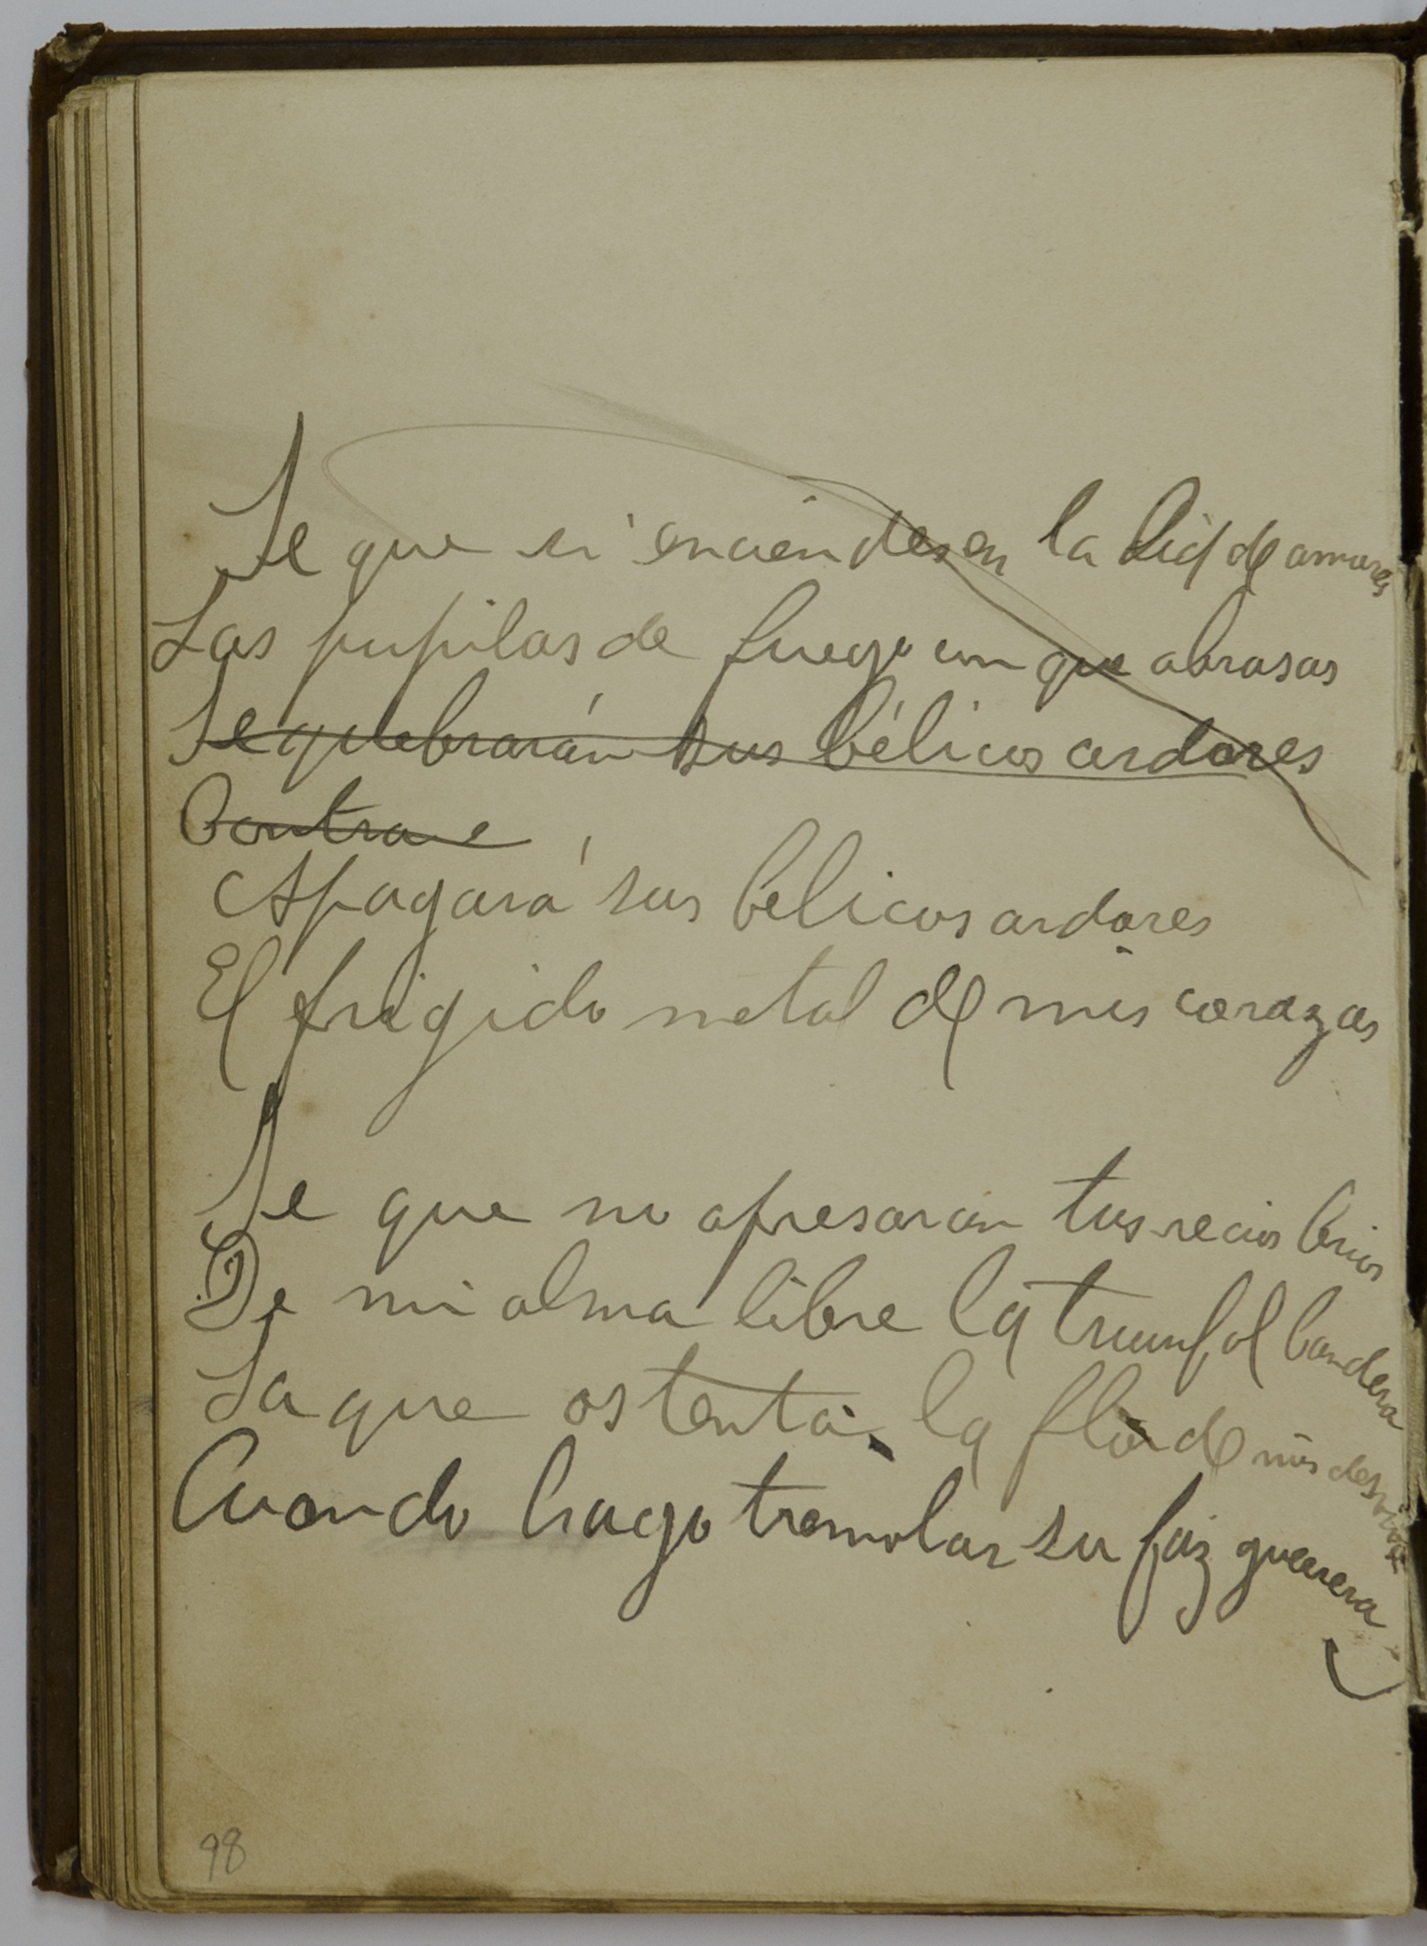 Se que si enciendes en la lid de amores
Las pupilas de fuego con que abrasas
Se quebrarán sus bélicos ardores
Contra e
Apagará sus belicos ardores
El frigido metal de mis corazas
Se que no apresaran tus recios brios
De mi alma libre la triunfal bandera
La que ostenta la flor de mis desvios
Cuando hago tremolar su faz guerrera
98